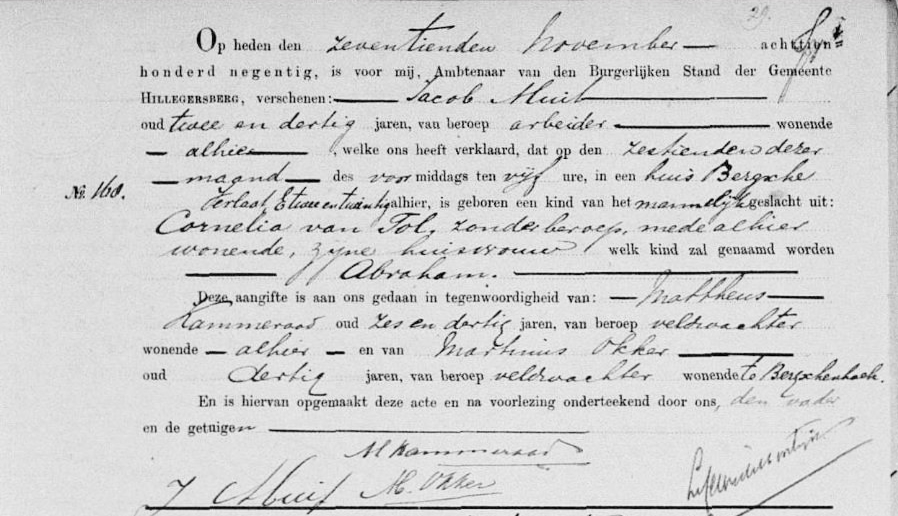 29.
Op heden den zeventienden November achttien
honderd negentig, is voor mij, Ambtenaar van den Burgerlijken Stand der Gemeente
HILLEGERSBERG, verschenen: Jacob Muit
oud twee en dertig jaren, van beroep arbeider wonende
alhier, welke ons heeft verklaard, dat op den zestienden dezer
maand des voormiddags ten vijf ure, in een huis Bergsche
No. 160.
Verlaat, E twee en twintig alhier, is geboren een kind van het mannelijk geslacht uit:
Cornelia van Tol, zonder beroep, mede alhier
wonende, zijne huisvrouw welk kind zal genaamd worden
Abraham.
Deze aangifte is aan ons gedaan in tegenwoordigheid van: Mattheus
Kammeraad oud zes en dertig jaren, van beroep veldwachter
wonende alhier en van Martinus Okker
oud dertig jaren, van beroep veldwachter wonende te Bergschenhoek.
En is hiervan opgemaakt deze acte en na voorlezing onderteekend door ons, den vader
en de getuigen
M Kammeraad
J Muit M. Okker